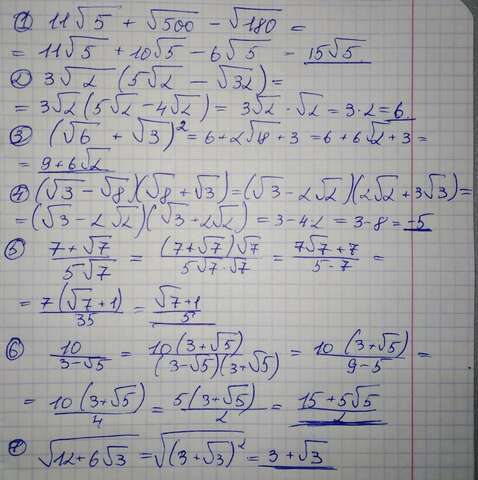 ① 11√5 + √500 - √180 =
= 11√5 + 10√5 - 6√5 - 15√5
② 3√2 (5√2 - √32) =
= 3√2 (5√2 - 4√2) = 3√2 · √2 = 3·2 = 6
③ (√6 + √3)² = 6 + 2√18 + 3 = 6 + 6√2 + 3 =
= 9 + 6√2
④ (√3 - √8)(√8 + √3) = (√3 - 2√2)(2√2 + 3√3) =
= (√3 - 2√2)(√3 + 2√2) = 3 - 42 = 3 - 8 = -5
⑤ (7 + √7)/(5√7) = ((7 + √7)√7)/(5√7·√7) = (7√7 + 7)/(5·7) =
= 7(√7 + 1)/35 = (√7 + 1)/5
⑥ 10/(3 - √5) = 10(3 + √5)/((3 - √5)(3 + √5)) = 10(3 + √5)/(9 - 5) =
= 10(3 + √5)/4 = 5(3 + √5)/2 = (15 + 5√5)/2
⑦ √(12 + 6√3) = √((3 + √3)²) = 3 + √3